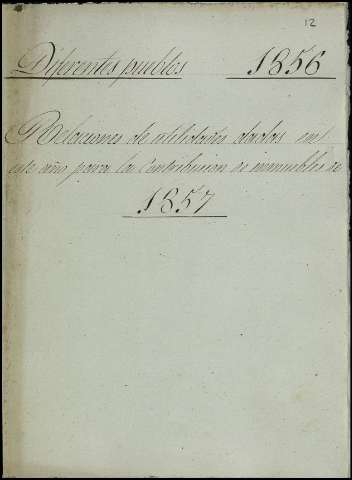 12
Diferentes pueblos 1856
Relaciones de utilidades dadas en
este año para la Contribucion de inmuebles de
1857